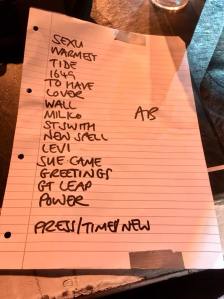 SEXU
WARMEST
TIDE
1649
TO HAVE
COVER
WALL
MILKO
ST SWITH
NEW SPELL
LEVI
SUE CAME
GREETINGS
GT LEAP
POWER
PRESS/TIMES/NEW